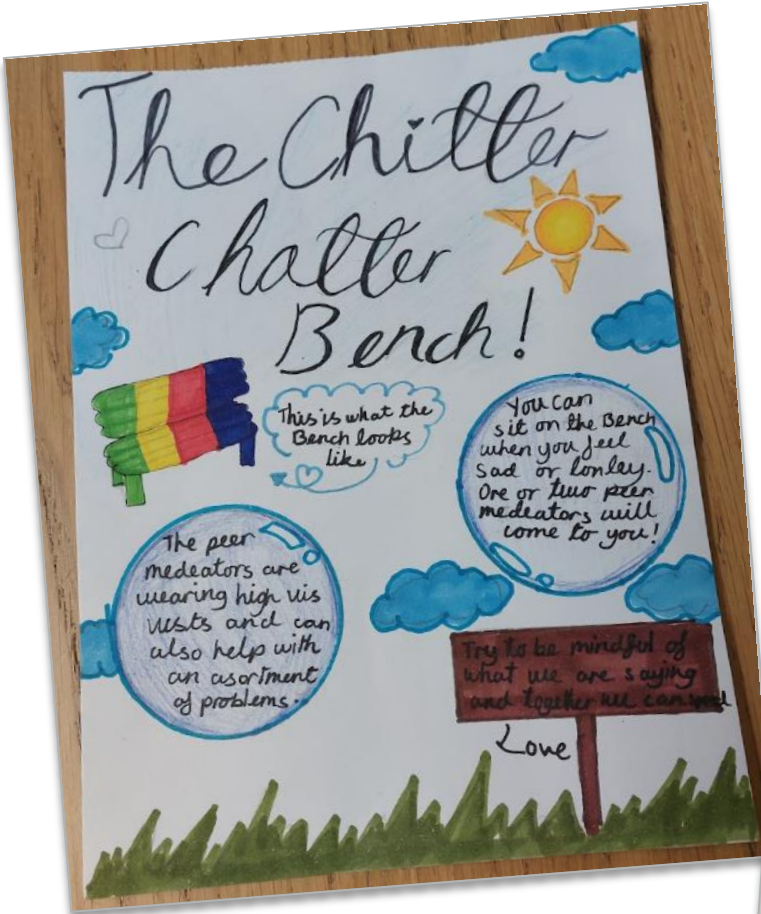 The Chitter
Chatter
Bench!
This is what the
Bench looks
like
You can
sit on the Bench
when you feel
sad or lonley.
One or two peer
medeators will
come to you!
The peer
medeators are
wearing high vis
vests and can
also help with
an asortment
of problems.
Try to be mindful of
what we are saying
and together we can
Love